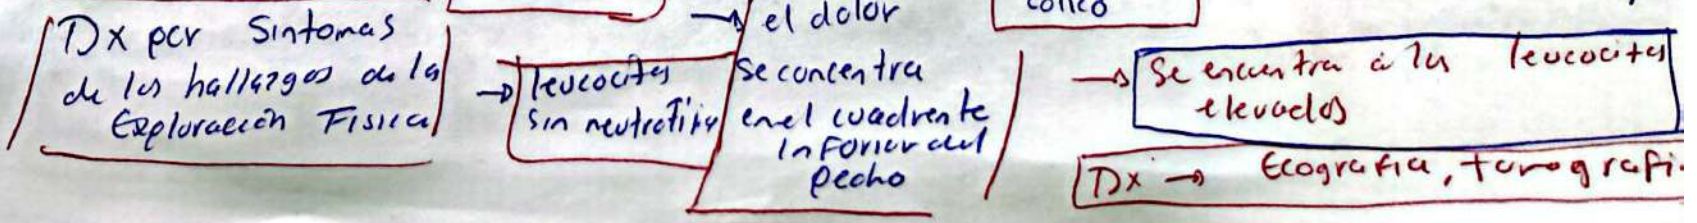 Dx por Sintomas
de los hallazgos de la
Exploración Fisica
→ leucocitos
sin neutrofili
→ el dolor
se concentra
en el cuadrente
inferior del
pecho
cólico
→ Se encuentra a los leucocitos
elevados
Dx → Ecografia, tomografi